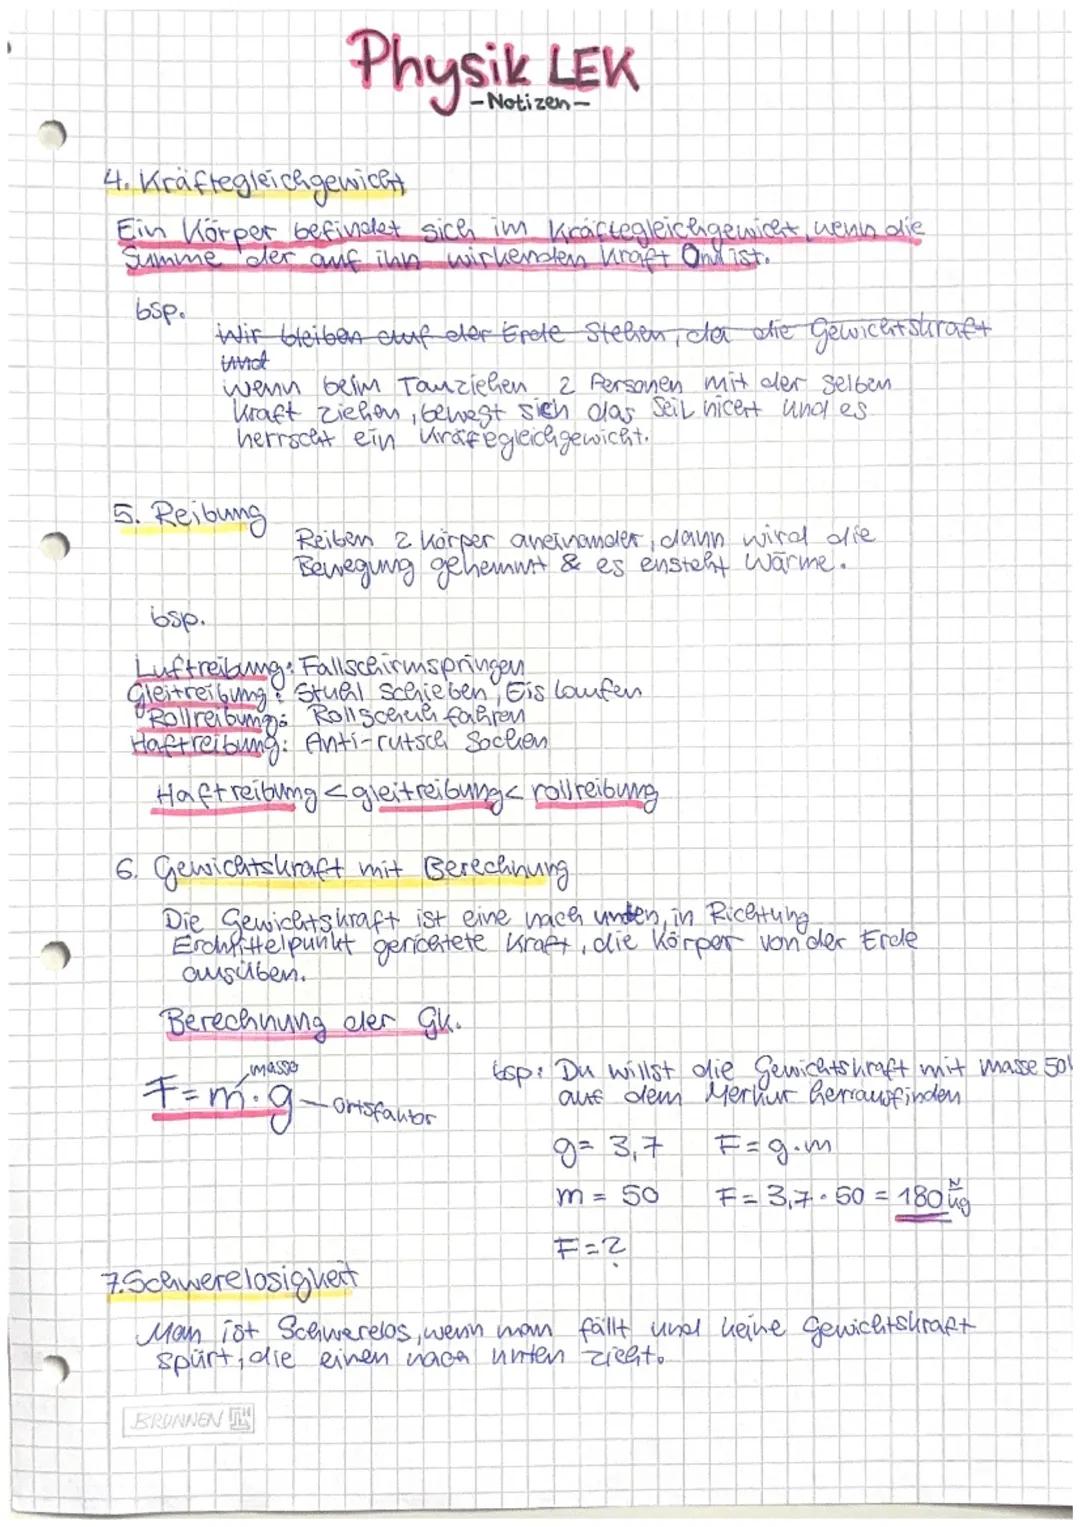 Physik LEK
-Notizen-
4. Kräftegleichgewicht
Ein Körper befindet sich im Kräftegleichgewicht, wenn die
Summe der auf ihn wirkenden Kraft 0 ist.
bsp.
Wir bleiben auf der Erde stehen, da die Gewichtskraft
und
wenn beim Tauziehen 2 Personen mit der selben
Kraft ziehen, bewegt sich das Seil nicht und es
herrscht ein Kräfegleichgewicht.
5. Reibung
Reiben 2 Körper aneinander, dann wird die
Bewegung gehemmt & es ensteht Wärme.
bsp.
Luftreibung: Fallschirmspringen
Gleitreibung: Stuhl schieben, Eis laufen
Rollreibung: Rollschuh fahren
Haftreibung: Anti-rutsch Socken
Haftreibung < gleitreibung < rollreibung
6. Gewichtskraft mit Berechnung
Die Gewichtskraft ist eine nach unten, in Richtung
Erdmittelpunkt gerichtete Kraft, die Körper von der Erde
ausüben.
Berechnung der Gk.
masse
F = m · g - ortsfaktor
bsp: Du willst die Gewichtskraft mit masse 50
auf dem Merkur herrausfinden
g = 3,7 F = g · m
m = 50 F = 3,7 · 50 = 180 N/kg
F = ?
7. Schwerelosigkeit
Man ist Schwerelos, wenn man fällt und keine Gewichtskraft
spürt, die einen nach unten zieht.
BRUNNEN